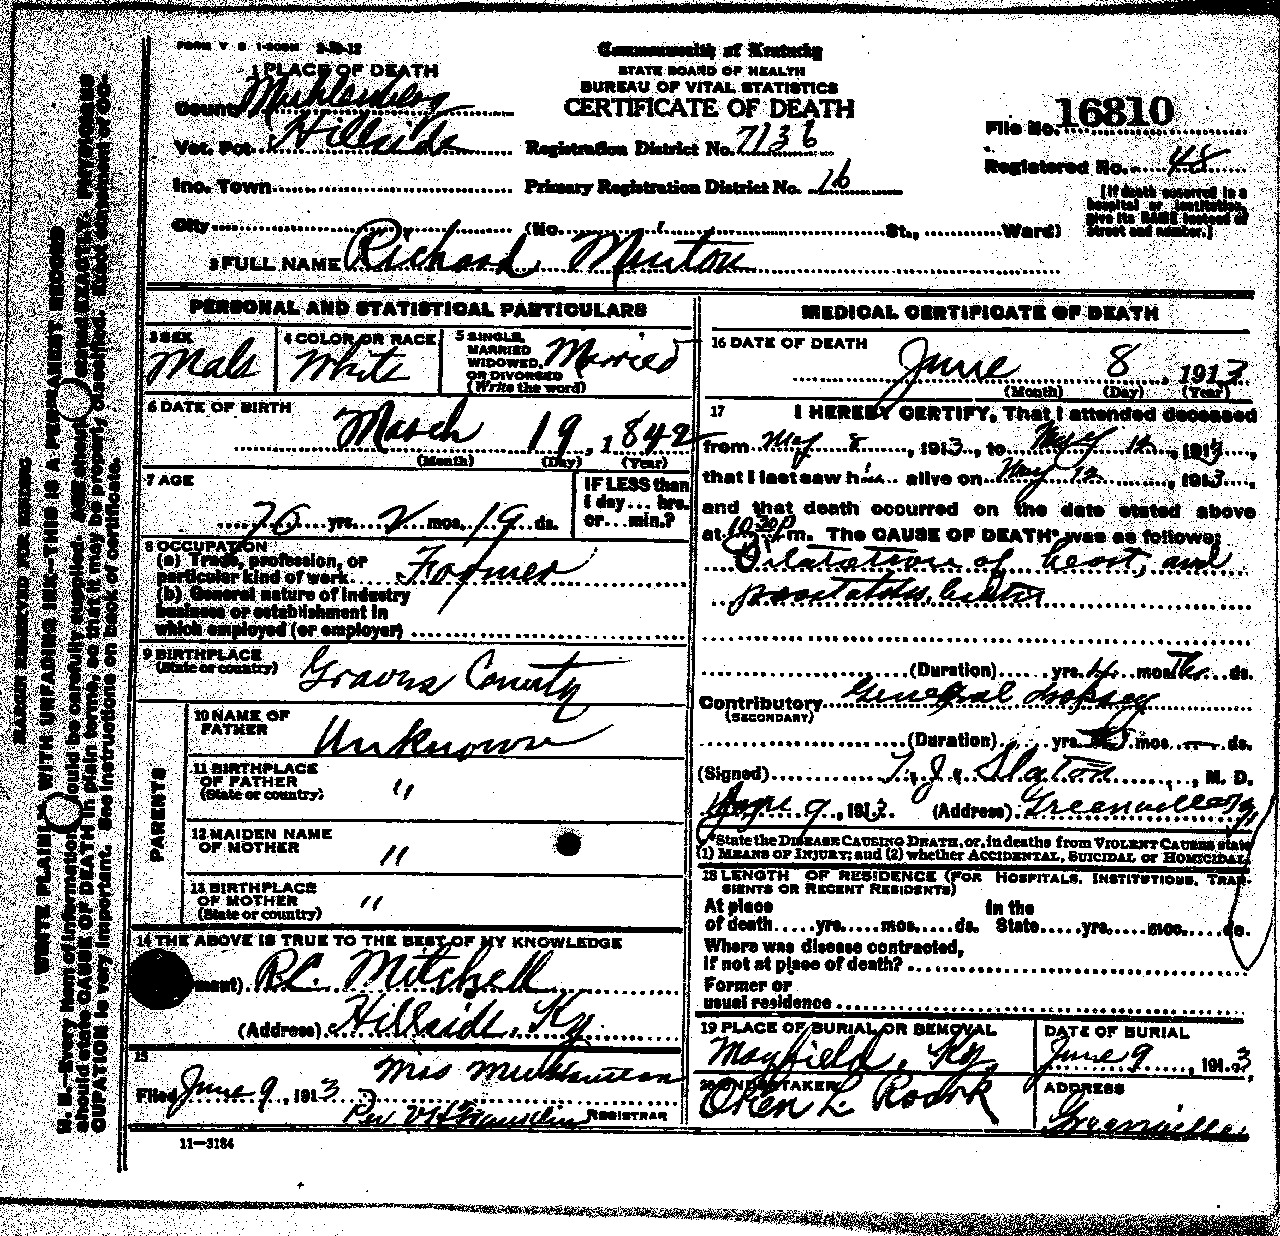 FORM V S 1-500M 2-20-12
Commonwealth of Kentucky
STATE BOARD OF HEALTH
BUREAU OF VITAL STATISTICS
CERTIFICATE OF DEATH
1 PLACE OF DEATH
County Muhlenberg
Vot. Pct. Hillside
Registration District No. 7136
File No. 16810
Registered No. 48
Inc. Town
Primary Registration District No. 16
[If death occurred in a
hospital or institution,
give its NAME instead of
street and number.]
City (No. St., Ward)
2 FULL NAME Richard Minton
PERSONAL AND STATISTICAL PARTICULARS
3 SEX
Male
4 COLOR OR RACE
White
5 SINGLE,
MARRIED
WIDOWED,
OR DIVORCED
(Write the word)
Married
6 DATE OF BIRTH
March 19, 1842
(Month) (Day) (Year)
7 AGE
70 yrs. 2 mos. 19 ds.
IF LESS than
1 day... hrs.
or...min.?
8 OCCUPATION
(a) Trade, profession, or
particular kind of work. Farmer
(b) General nature of industry
business or establishment in
which employed (or employer)
9 BIRTHPLACE
(State or country) Graves County
PARENTS
10 NAME OF
FATHER Unknown
11 BIRTHPLACE
OF FATHER
(State or country) "
12 MAIDEN NAME
OF MOTHER "
13 BIRTHPLACE
OF MOTHER
(State or country) "
14 THE ABOVE IS TRUE TO THE BEST OF MY KNOWLEDGE
mant) R.C. Mitchell
(Address) Hillside, Ky
15
Filed June 9, 1913 Mrs
Per REGISTRAR
11—3184
MEDICAL CERTIFICATE OF DEATH
16 DATE OF DEATH
June 8, 1913
(Month) (Day) (Year)
17 I HEREBY CERTIFY, That I attended deceased
from May 8, 1913, to May 12, 1913,
that I last saw him alive on May 12, 1913.
and that death occurred on the date stated above
at 10.30 P m. The CAUSE OF DEATH* was as follows:
Dilatation of heart, and
(Duration) yrs. 4 mos. ds.
Contributory General dropsy
(SECONDARY)
(Duration) yrs. mos. ds.
(Signed) T. J. Slaton, M. D.
June 9, 1913. (Address) Greenville Ky
*State the DISEASE CAUSING DEATH, or, in deaths from VIOLENT CAUSES state
(1) MEANS OF INJURY; and (2) whether ACCIDENTAL, SUICIDAL or HOMICIDAL.
18 LENGTH OF RESIDENCE (FOR HOSPITALS, INSTITUTIONS, TRAN-
SIENTS OR RECENT RESIDENTS)
At place In the
of death.....yrs.....mos.....ds. State.....yrs.....mos.....ds.
Where was disease contracted,
if not at place of death?
Former or
usual residence
19 PLACE OF BURIAL OR REMOVAL
Mayfield, Ky
DATE OF BURIAL
June 9, 1913
20 UNDERTAKER
Oren L. Roark
ADDRESS
Greenville
MARGIN RESERVED FOR BINDING
WRITE PLAINLY, WITH UNFADING INK—THIS IS A PERMANENT RECORD
N. B.—Every item of information should be carefully supplied. AGE should be stated EXACTLY. PHYSICIANS
should state CAUSE OF DEATH in plain terms, so that it may be properly classified. Exact statement of OC-
CUPATION is very important. See instructions on back of certificate.